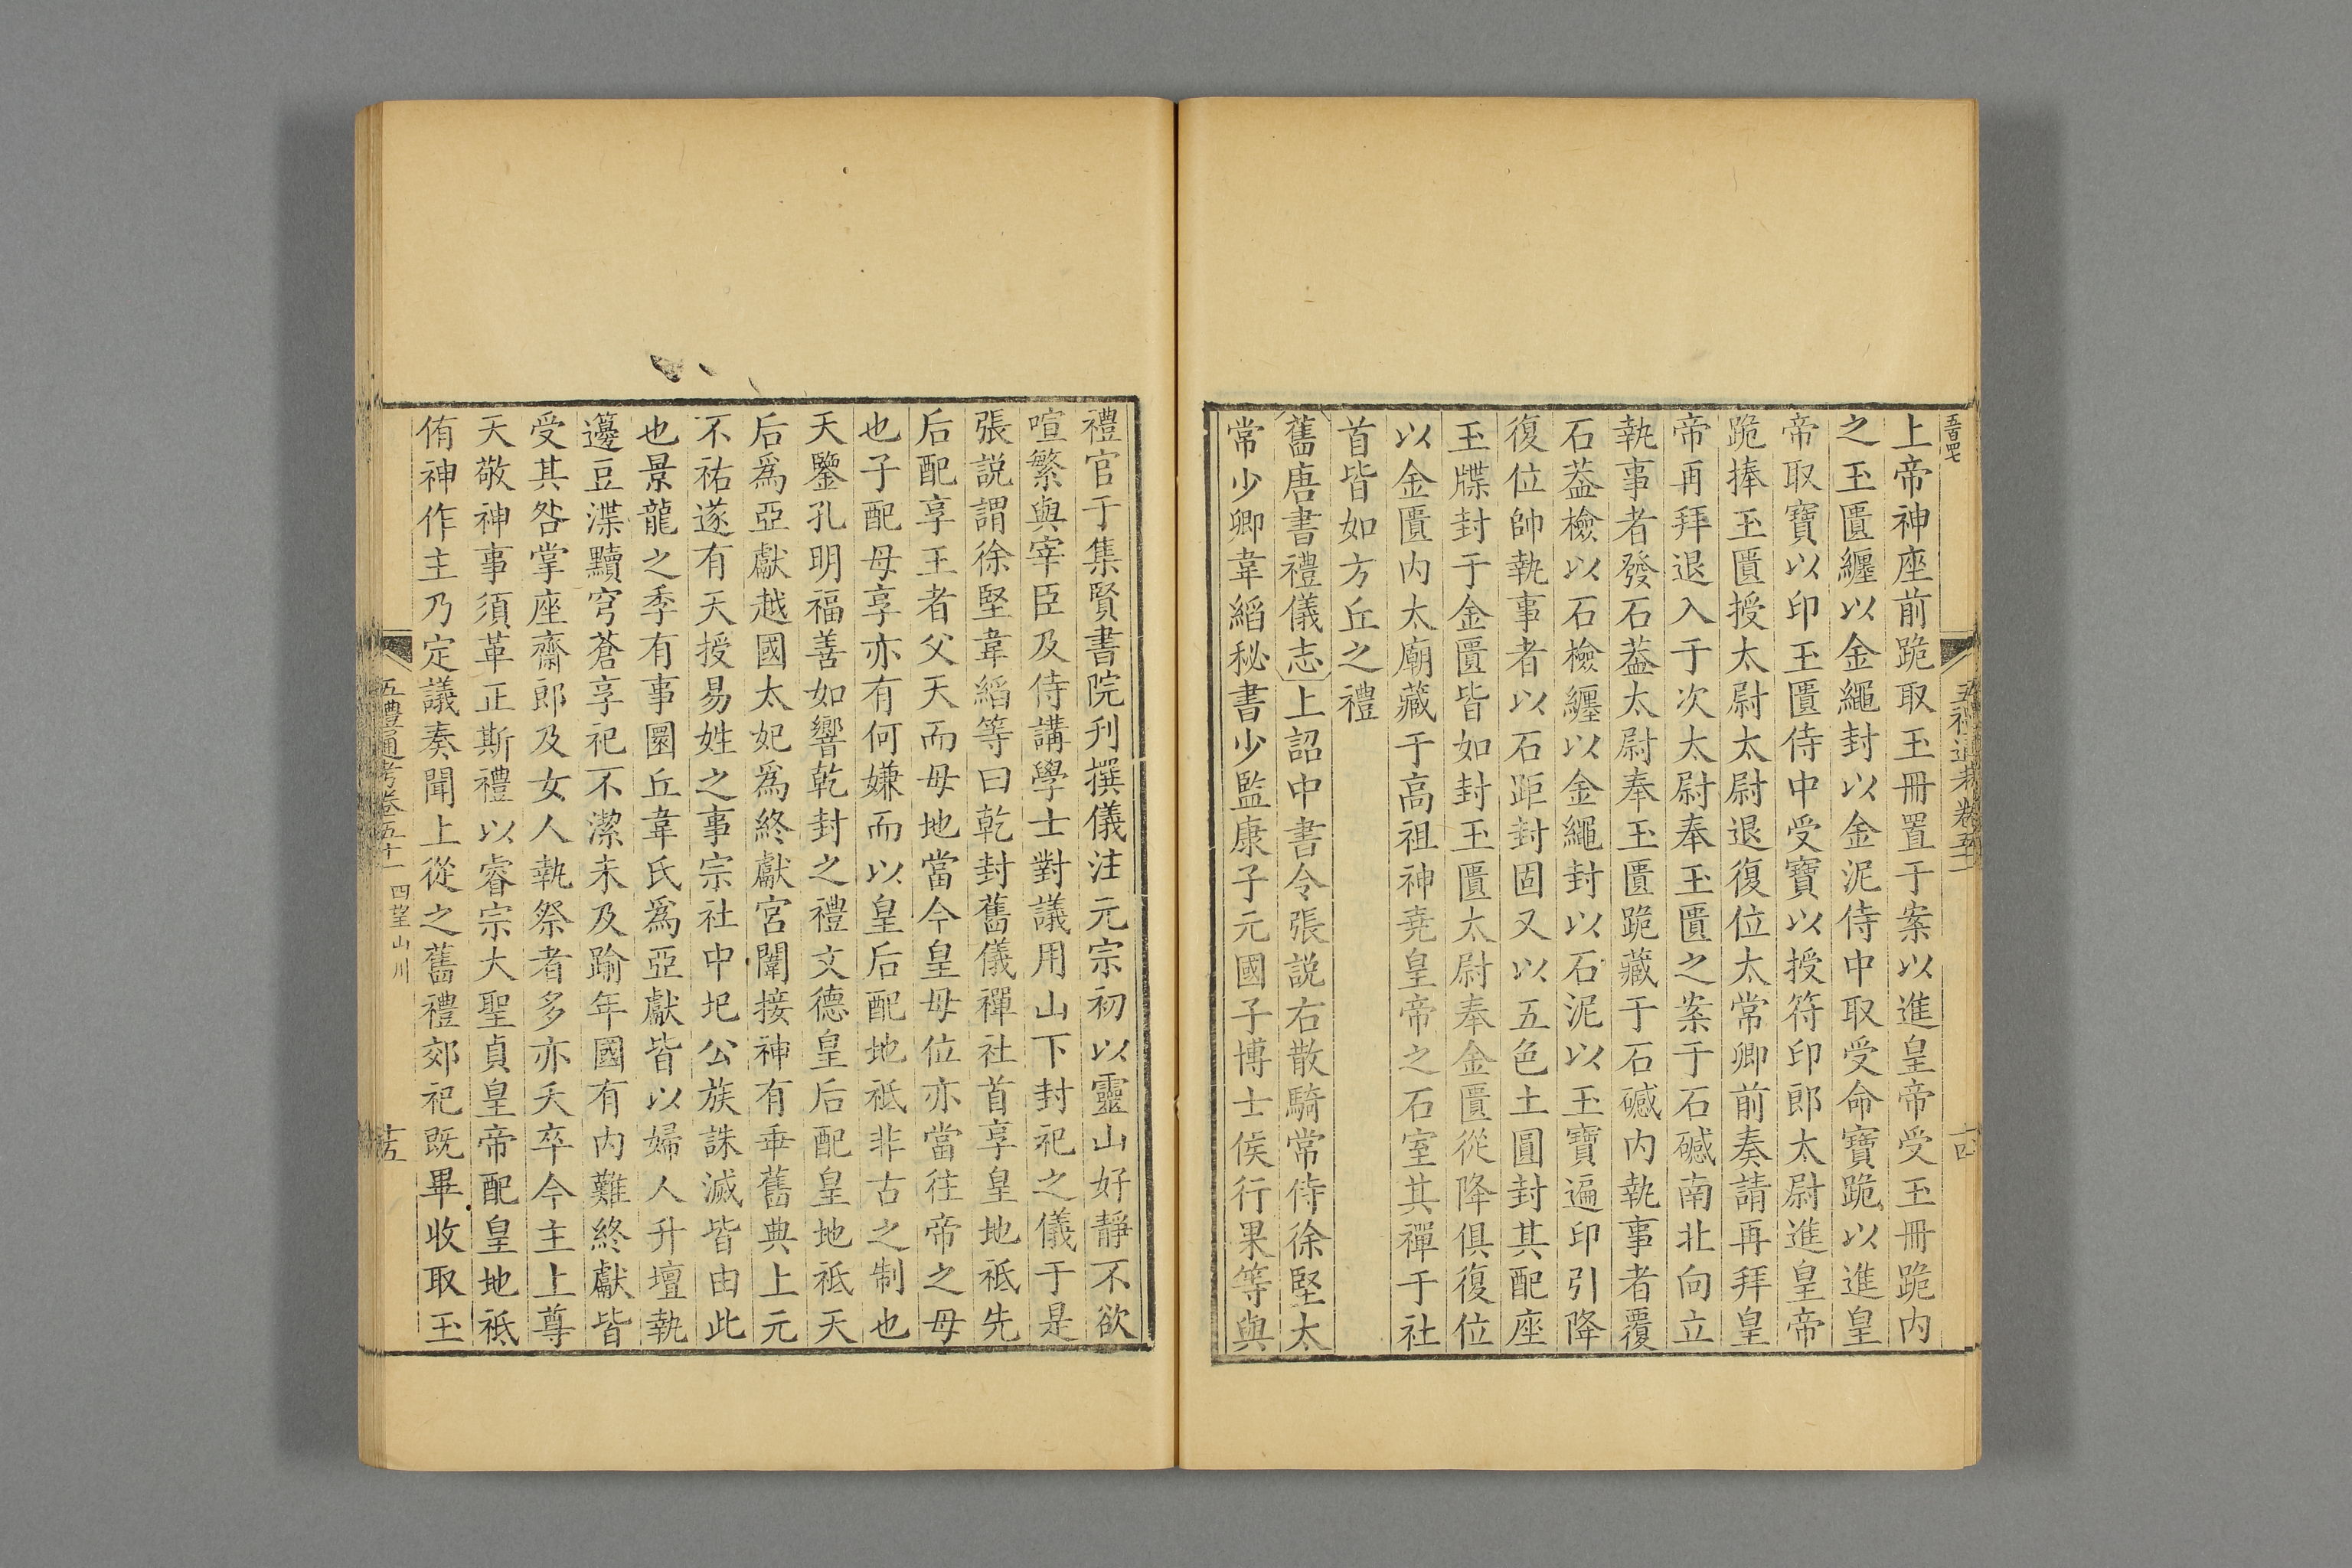 五百四七
上帝神座前跪取玉冊置于案以進皇帝受玉冊跪内
之玉匱纏以金繩封以金泥侍中取受命寶跪以進皇
帝取寶以印玉匱侍中受寶以授符印郎太尉進皇帝
跪捧玉匱授太尉太尉退復位太常卿前奏請再拜皇
帝再拜退入于次太尉奉玉匱之案于石䃭南北向立
執事者發石葢太尉奉玉匱跪藏于石䃭内執事者覆
石葢檢以石檢纏以金繩封以石泥以玉寶遍印引降
復位帥執事者以石距封固又以五色土圓封其配座
玉牒封于金匱皆如封玉匱太尉奉金匱從降俱復位
以金匱内太廟藏于高祖神堯皇帝之石室其禪于社
首皆如方丘之禮
舊唐書禮儀志上詔中書令張説右散騎常侍徐堅太
常少卿韋縚秘書少監康子元國子博士侯行果等與
五禮通考卷五十一
十四
禮官于集賢書院刋撰儀注元宗初以靈山好靜不欲
喧繁與宰臣及侍講學士對議用山下封祀之儀于是
張説謂徐堅韋縚等曰乾封舊儀禪社首享皇地祇先
后配享王者父天而母地當今皇母位亦當往帝之母
也子配母享亦有何嫌而以皇后配地祇非古之制也
天鑒孔明福善如響乾封之禮文德皇后配皇地祇天
后爲亞獻越國太妃爲終獻宮闈接神有乖舊典上元
不祐遂有天授易姓之事宗社中圮公族誅滅皆由此
也景龍之季有事圜丘韋氏爲亞獻皆以婦人升壇執
籩豆渫黷穹蒼享祀不潔未及踰年國有内難終獻皆
受其咎掌座齋郎及女人執祭者多亦夭卒今主上尊
天敬神事須革正斯禮以睿宗大聖貞皇帝配皇地祇
侑神作主乃定議奏聞上從之舊禮郊祀既畢收取玉
五禮通考卷五十一 四望山川
十五